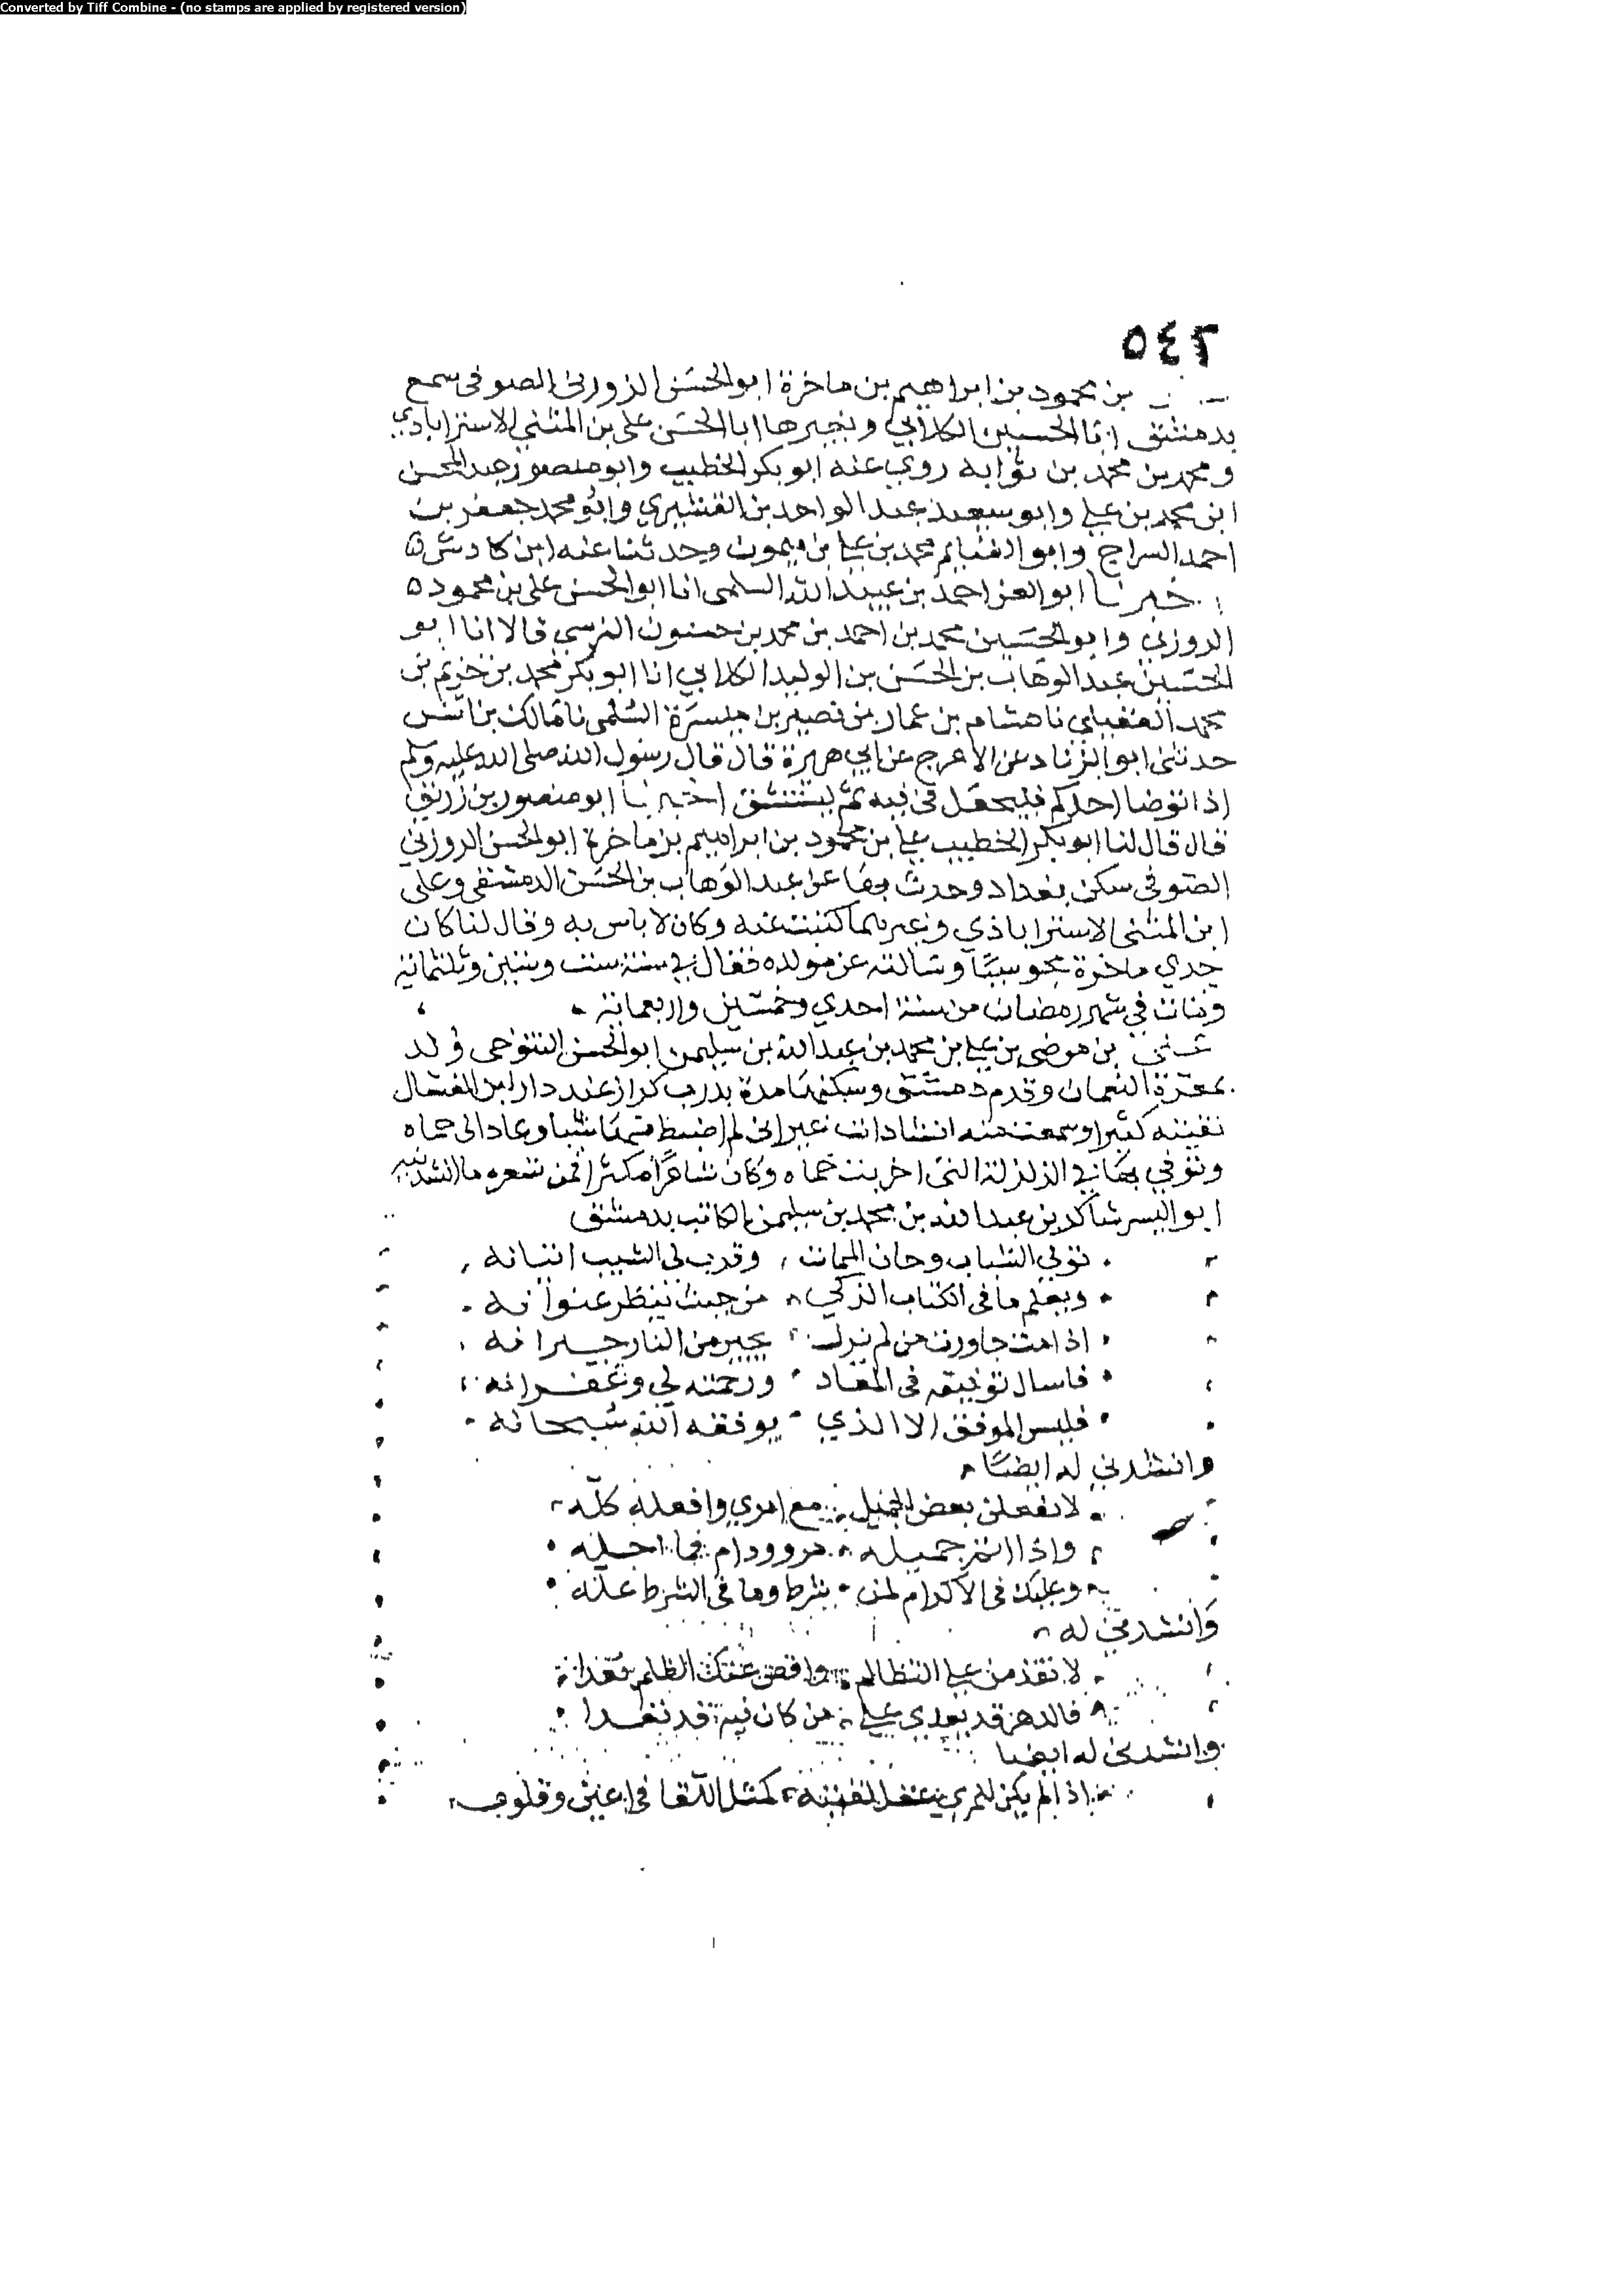 Converted by Tiff Combine - (no stamps are applied by registered version)
٥٤٢
بن محمود بن ابراهيم بن ماخرة ابو الحسن الزوزني الصوفي سمع
بدمشق ابا الحسين الكلابي وبغيرها ابا الحسن علي بن المثني الاستراباذي
ومحمد بن محمد بن ثوابه روي عنه ابو بكر الخطيب وابو منصور عبد المحسن
ابن محمد بن علي وابو سعيد عبد الواحد بن القشيري وابو محمد جعفر بن
احمد السراج وابو الغنايم محمد بن علي بن ميمون وحدثنا عنه ابن كادش ٥
اخبرنا ابو العز احمد بن عبيد الله السلمى انا ابو الحسن علي بن محمود ٥
الزوزني وابو الحسين محمد بن احمد بن محمد بن حسنون النرسي قالا انا ابو
الحسين عبد الوهاب بن الحسن بن الوليد الكلابي انا ابو بكر محمد بن خريم بن
محمد العقيلي نا هشام بن عمار بن نصير بن ميسرة السلمى نا مالك بن انس
حدثنى ابو الزناد عن الاعرج عن ابي هريرة قال قال رسول الله صلى الله عليه وسلم
اذا توضا احدكم فليجعل في فيه ثم ليستنشق اخبرنا ابو منصور بن زريق
قال قال لنا ابو بكر الخطيب علي بن محمود بن ابراهيم بن ماخرة ابو الحسن الزوزني
الصوفي سكن بغداد وحدث بها عن عبد الوهاب بن الحسن الدمشقى وعلى
ابن المثنى الاستراباذي وغيرهما كتبت عنه وكان لا باس به وقال لنا كان
جدي ماخرة مجوسيا وسالته عن مولده فقال في سنة ست وستين وثلثمائة
ومات في شهر رمضان من سنة احدي وخمسين واربعمائة
علي بن مرضى بن علي بن محمد بن عبد الله بن سليمن ابو الحسن التنوخى ولد
بمعرة النعمان وقدم دمشق وسكنها مدة بدرب كراز عند دار ابن المغسال
لقيته كثيرا وسمعت منه انشادات غير انى لم اضبط منها شيا وعاد الى حماه
وتوفي بها في الزلزلة التى اخربت حماه وكان شاعرا مكثرا فمن شعره ما انشدنيه
ابو اليسر شاكر بن عبد الله بن محمد بن سليمن الكاتب بدمشق
تولي الشباب وحان الممات وقرب لي الشيب اتيانه
ويعلم ما في الكتاب الذكي من حيث ينظر عنوانه
اذا مت جاورت من لم يزل يجير من النار جيرانه
فاسال توفيقه في المعاد ورحمته لي وغفرانه
فليس الموفق الا الذي يوفقه الله سبحانه
وانشدني له ايضا
لا تفعلن بعض الجميل مع امري وافعله كله
واذا جميله ودام فما اجله
وعليك في الاكرام لمن بشرط وما في الشرط علة
وانشدني له
لا تقدمن علي التظالم الظلم
فالدهر قد يعدي علي من كان فيه قد تعدا
وانشدني له ايضا
اذا لم يكن للمرء عقل كمثل اللقا في اعين وقلوب